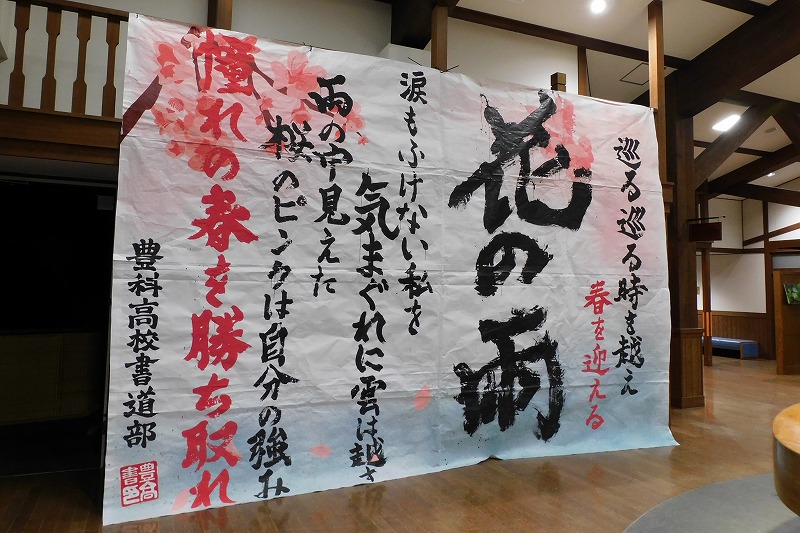 巡る巡る時を越え
春を迎える
花の雨
涙もふけない私を
気まぐれに雲は越す
雨の中見えた
桜のピンクは自分の強み
憧れの春を勝ち取れ
豊科高校書道部